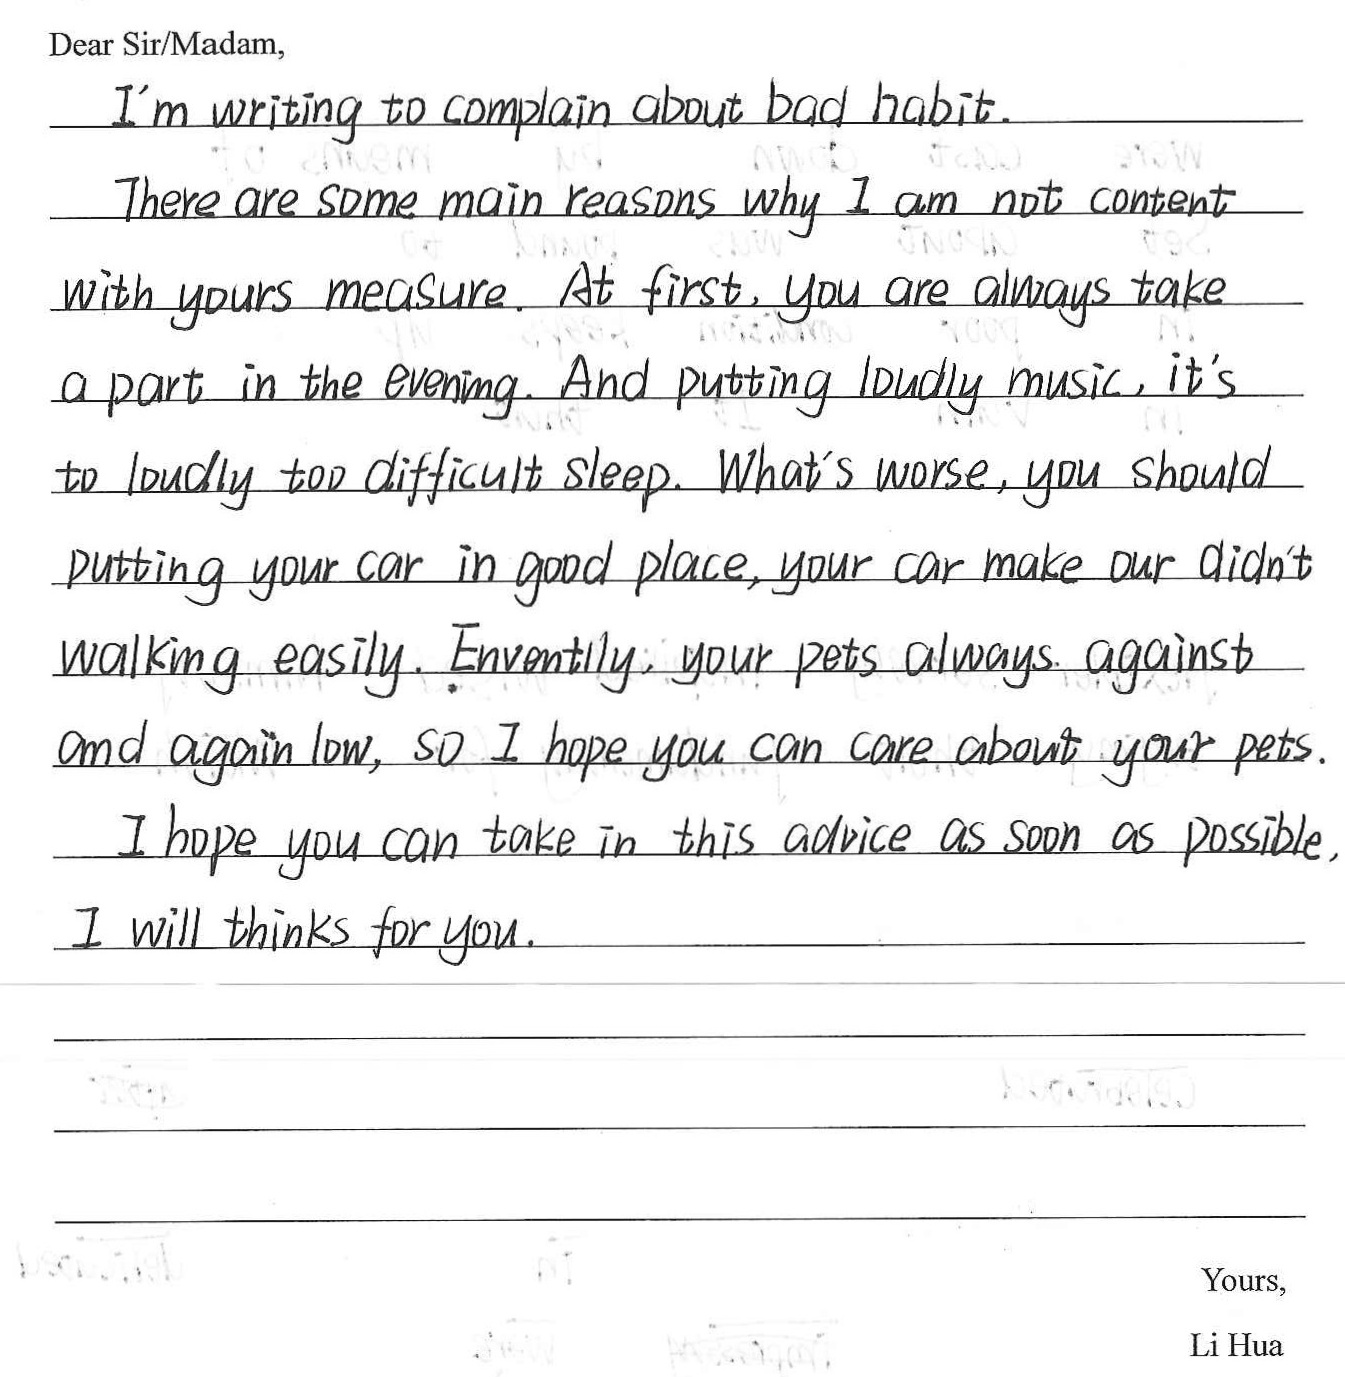 Dear Sir/Madam,
I'm writing to complain about bad habit.
There are some main reasons why I am not content
with yours measure. At first, you are always take
a part in the evening. And putting loudly music, it's
to loudly too difficult sleep. What's worse, you should
putting your car in good place, your car make our didn't
walking easily. Enventlly, your pets always against
and again low, so I hope you can care about your pets.
I hope you can take in this advice as soon as possible,
I will thinks for you.
Yours,
Li Hua